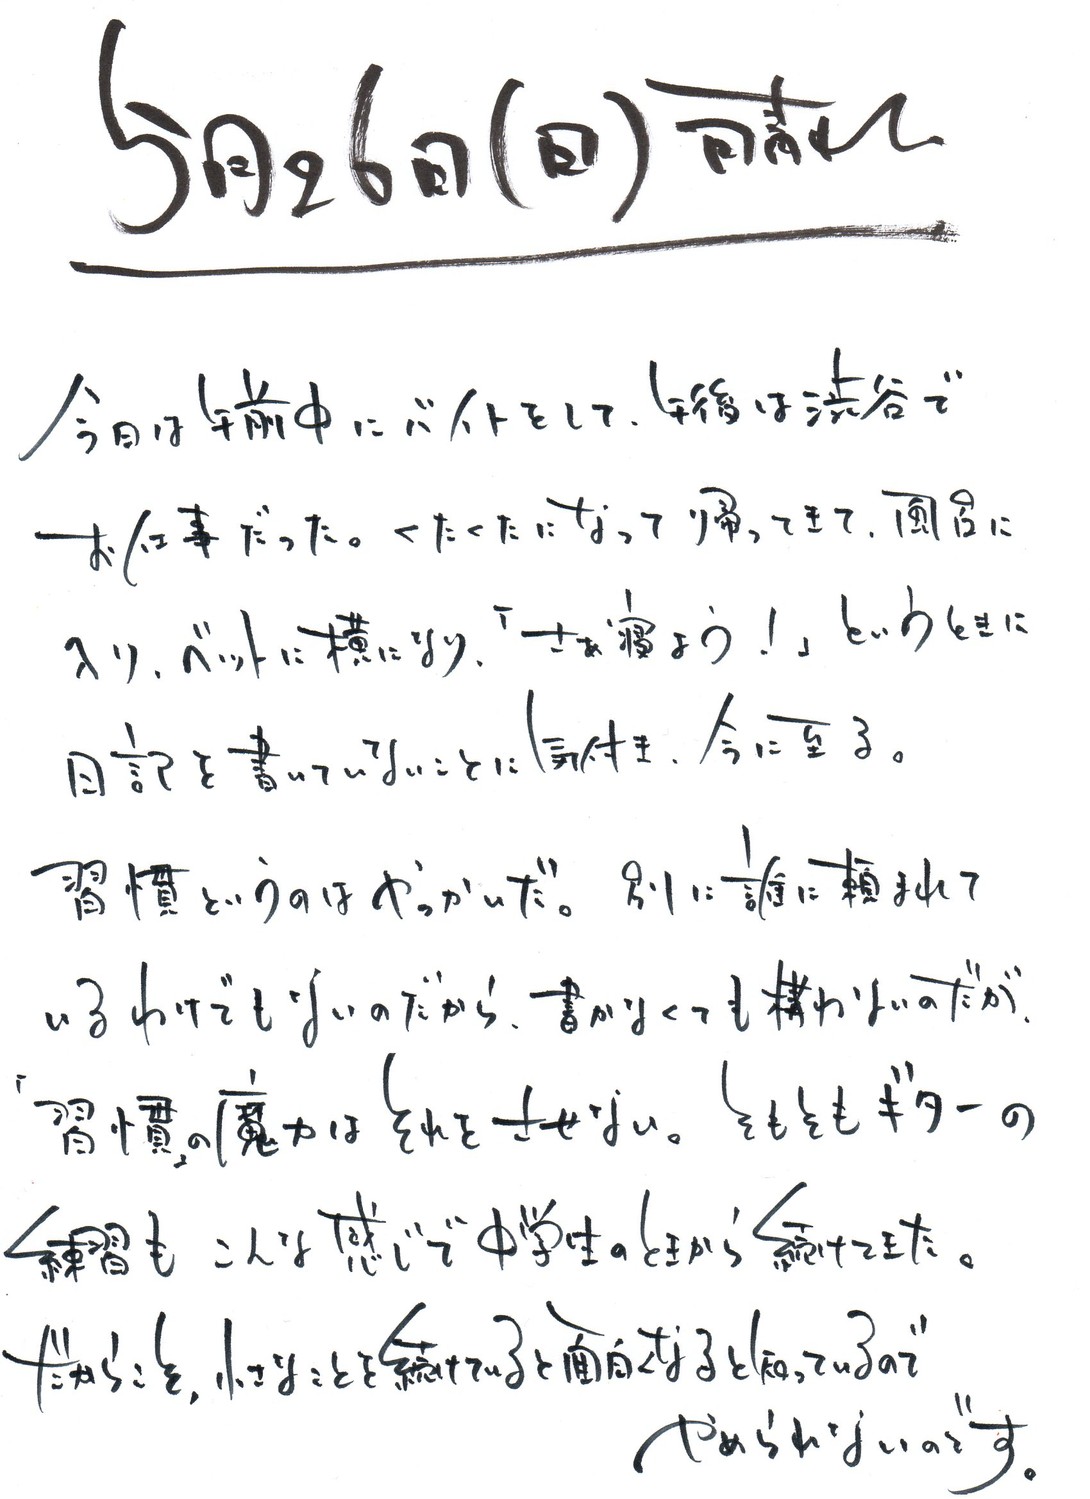 5月26日(日)晴れ
今日は午前中にバイトをして、午後は渋谷で
お仕事だった。くたくたになって帰ってきて、風呂に
入り、ベットに横になり、「さぁ寝よう!」というときに
日記を書いていないことに気付き、今に至る。
習慣というのはやっかいだ。別に誰に頼まれて
いるわけでもないのだから、書かなくても構わないのだが、
「習慣」の魔力はそれをさせない。そもそもギターの
練習もこんな感じで中学生のときから続けてきた。
だからこそ、小さなことを続けていると面白くなると知っているので
やめられないのです。